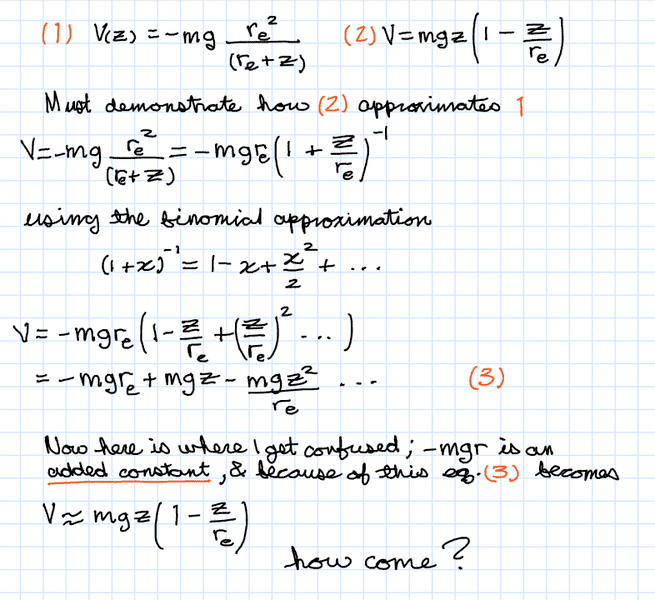 (1) V(z) = -mg r_e²/(r_e + z) (2) V = mgz(1 - z/r_e)
Must demonstrate how (2) approximates 1
V = -mg r_e²/(r_e + z) = -mgr_e(1 + z/r_e)⁻¹
using the binomial approximation
(1 + x)⁻¹ = 1 - x + x²/2 + ...
V = -mgr_e(1 - z/r_e + (z/r_e)² ...)
= -mgr_e + mgz - mgz²/r_e ... (3)
Now here is where I get confused; -mgr is an
added constant, & because of this eq. (3) becomes
V ≈ mgz(1 - z/r_e)
how come?